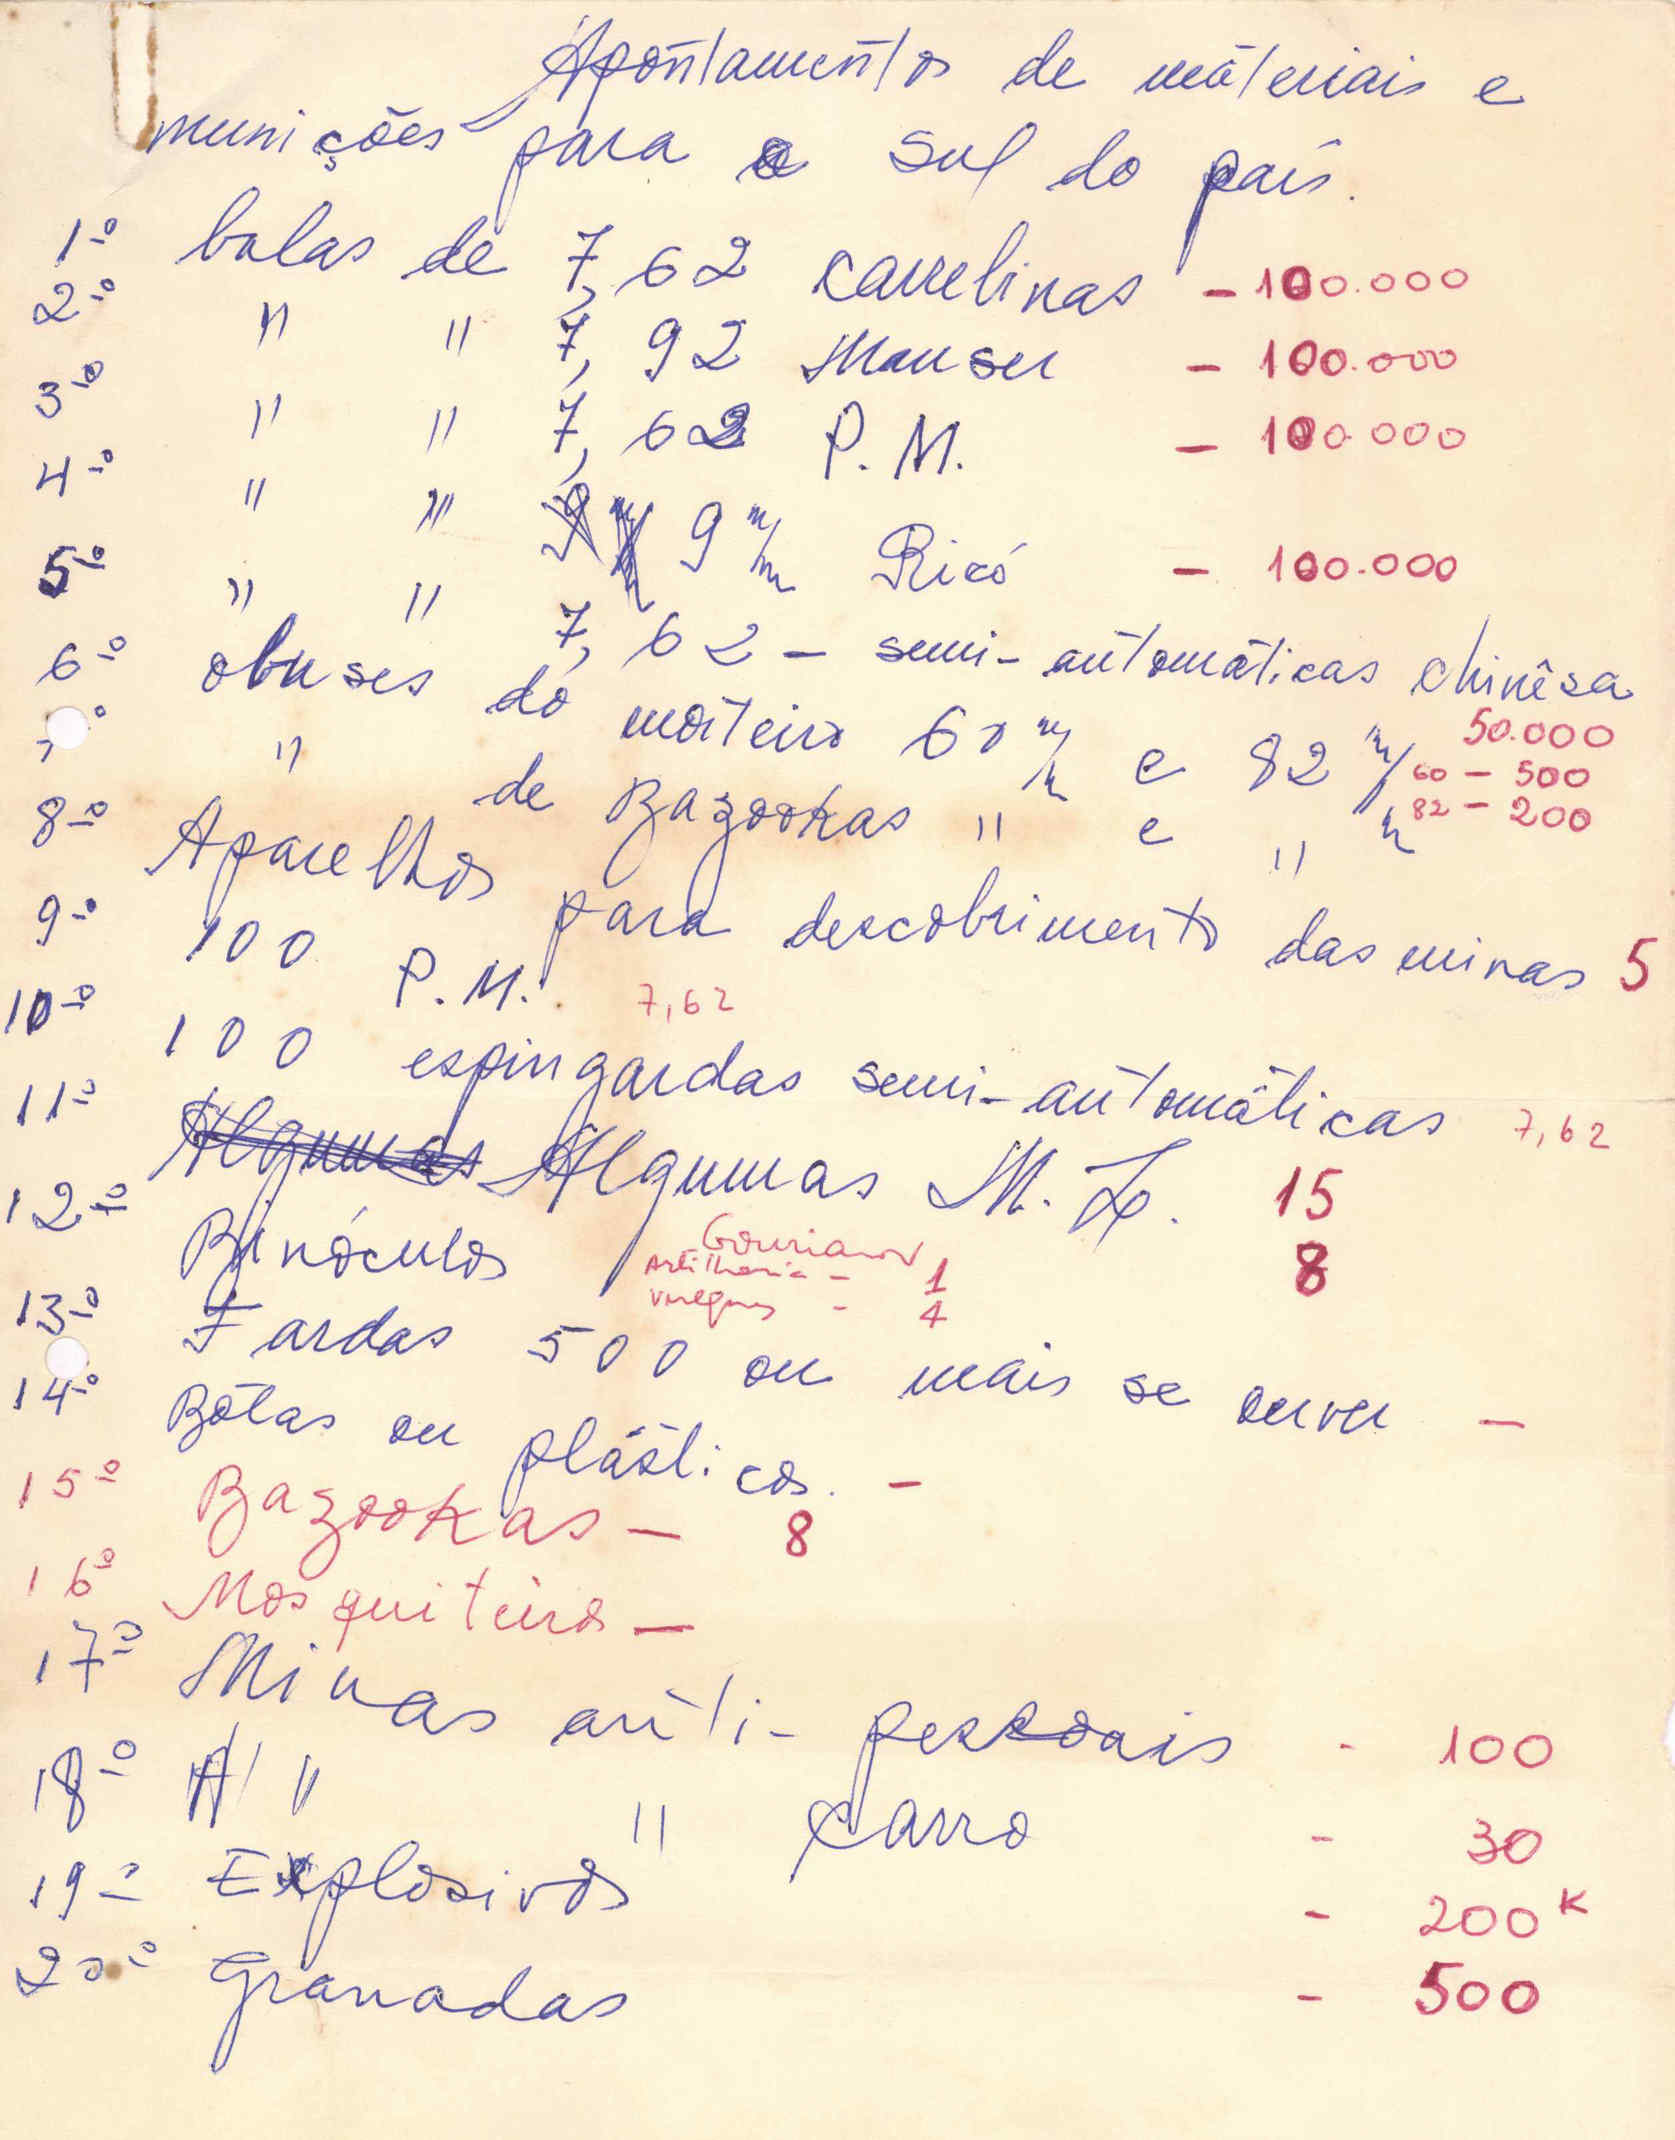 Apontamentos de materiais e
munições para o sul do país.
1º balas de 7,62 carrelinas - 100.000
2º " " 7,92 Mauser - 100.000
3º " " 7,62 P. M. - 100.000
4º " " 9 m/m Ricó - 100.000
5º " " 7,62 - semi-automáticas chinêsa 50.000
6º obuses do morteiro 60 m/m e 82 m/m 60 - 500
82 - 200
7º " de Bazookas " e "
8º Aparelhos para descobrimento das minas 5
9º 100 P. M. 7,62
10º 100 espingardas semi-automáticas 7,62
11º Algumas Algumas M. L. 15
12º Binóculos 8
Artilharia - 1
- 4
13º Fardas 500 ou mais se ouver -
14º Bótas ou plásticos. -
15º Bazookas - 8
16º Mosquiteiros -
17º Minas anti-pessoais - 100
18º " " carro - 30
19º Explosivos - 200 K
20º Granadas - 500